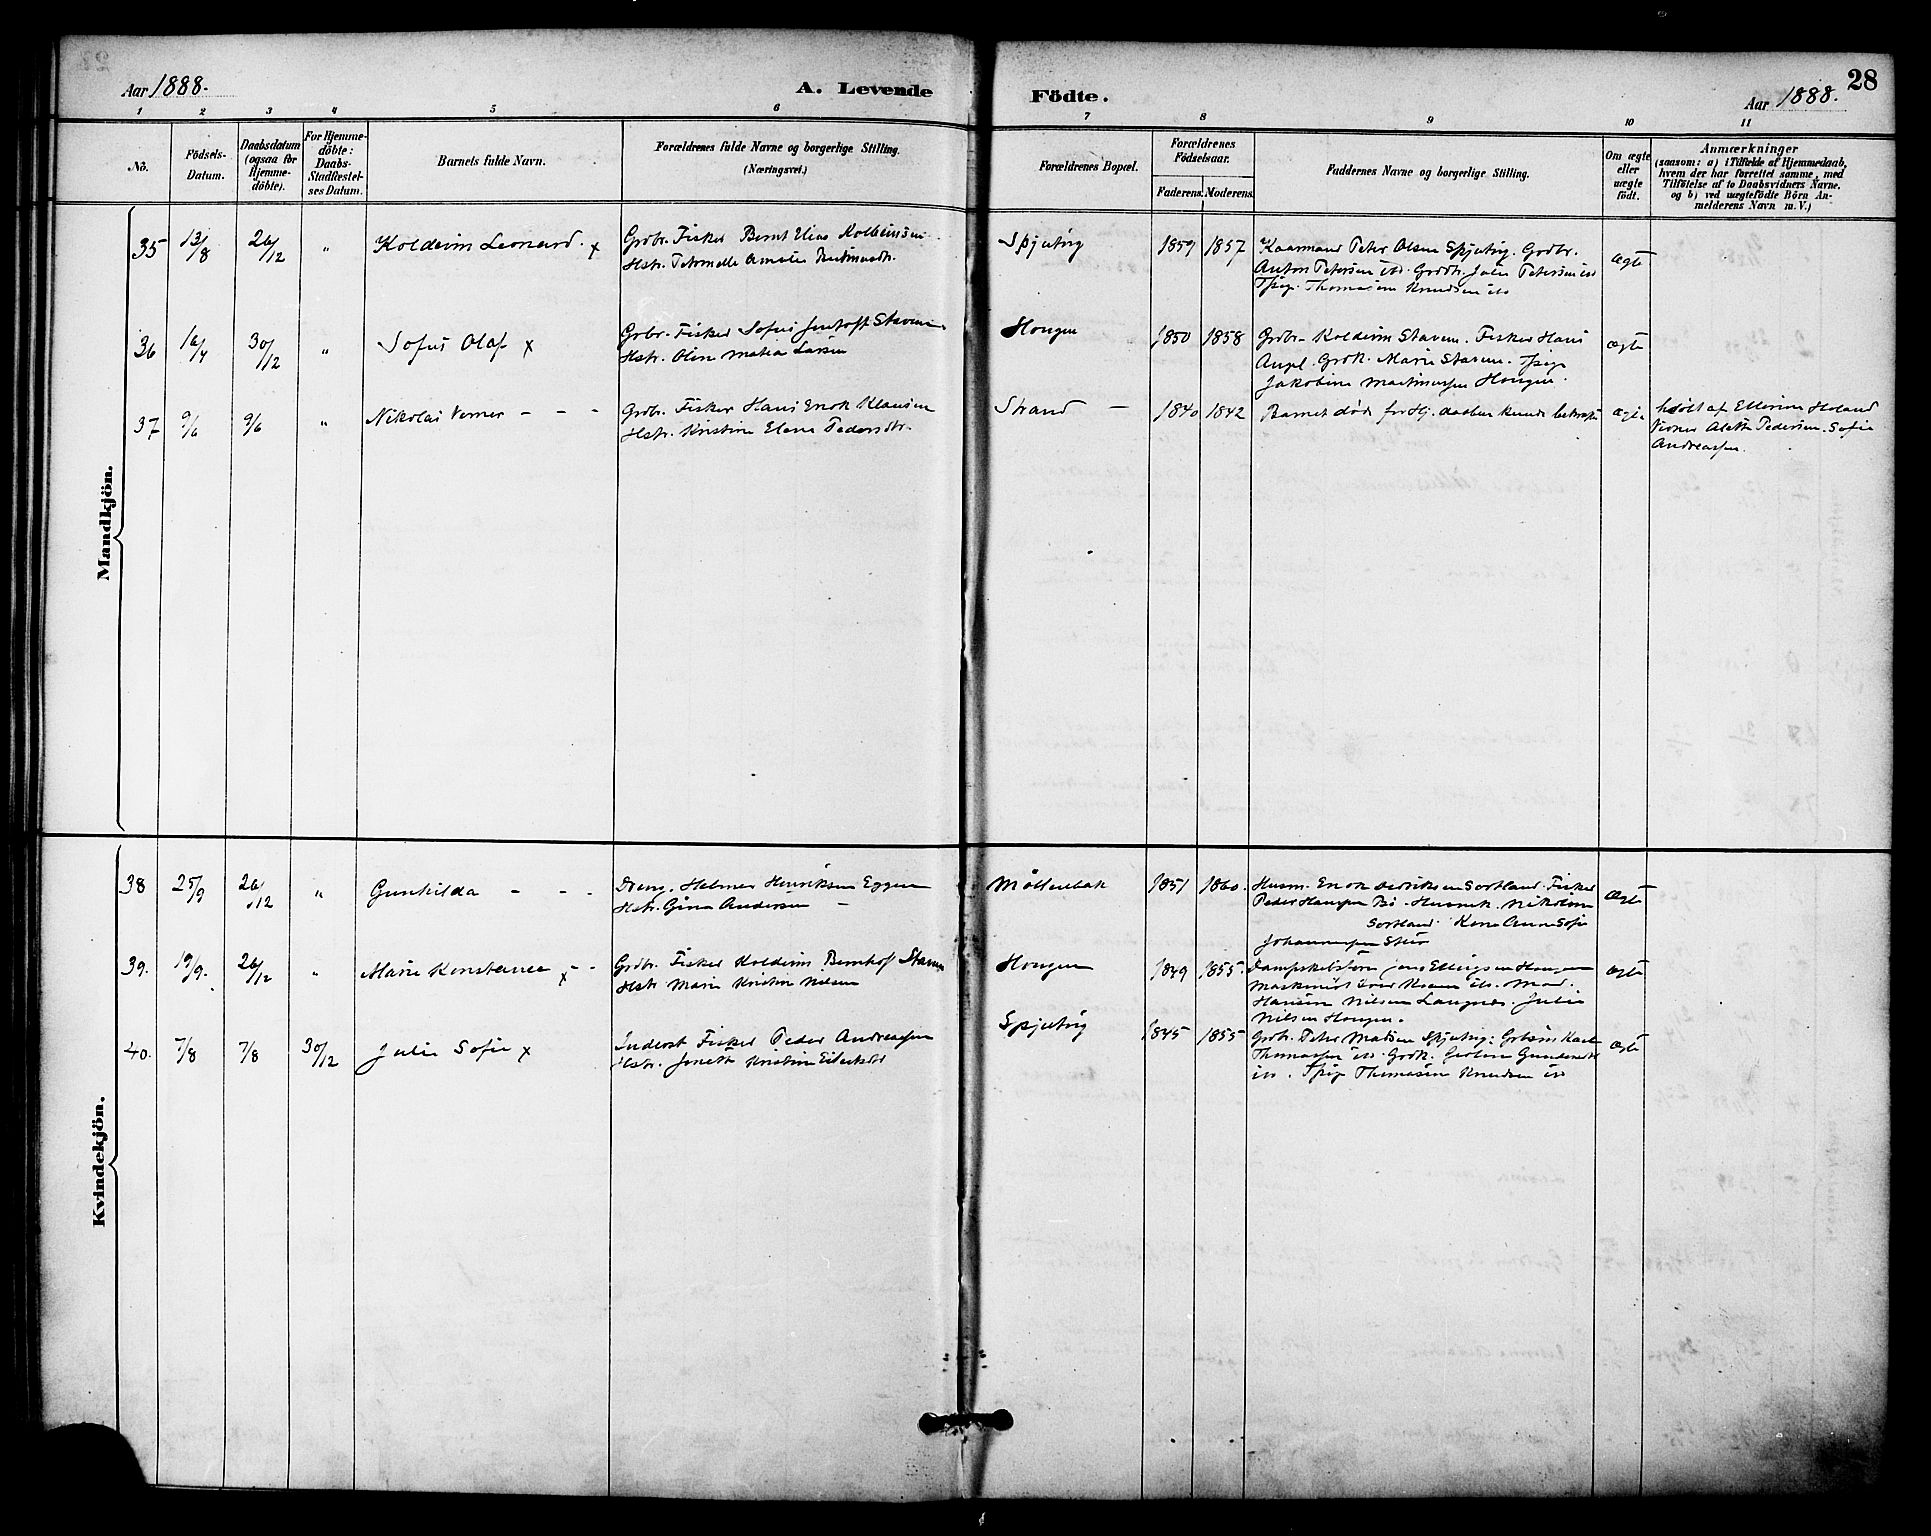 Aar 1888.
A. Levende
Födte.
Aar 1888.
28
1 2 3 4 5 6 7 8 9 10 11
No.
Födsels-
Datum.
Daabsdatum
(ogsaa for
Hjemme-
döbte).
For Hjemme-
döbte:
Daabs-
Stadfæstel-
ses Datum.
Barnets fulde Navn.
Forældrenes fulde Navne og borgerlige Stilling.
(Næringsvei.)
Forældrenes Bopæl.
Forældrenes
Födselsaar.
Faderens. Moderens.
Faddernes Navne og borgerlige Stilling.
Om ægte
eller
uægte
födt.
Anmærkninger
(saasom: a) i Tilfælde af Hjemmedaab,
hvem der har forrettet samme, med
Tilföielse af to Daabsvidners Navne.
og b) ved uægtefödte Börn An-
melderens Navn m. V.)
Mandkjön.
35 13/8 26/12 " Koldeim Leonard. x
Grdbr. Fisker Bernt Elias Kolbeinsen
Hstr. Petronelle Amalie
Spjutvig 1859 1857
Kaarmand Peter Olsen Spjutvig. Grdbr.
Anton Petersen ibd. Grdbr. Julie Petersen ibd
Tpige. Thomasine Knudsen ibd
ægte
36 16/4 30/12 " Sofus Olaf x
Grbr. Fisker Sofus Jentoft Stavem
Hstr. Oline Matea Larsen
Hongen 1850 1858
Grdbr. Koldeim Stavem. Fisker Hans
Angel. Grdk. Marie Stavem. Tpige
Jakobine Martinussen Hongen.
ægte
37 9/6 9/6 " Nikolai Verner - - -
Grdbr. Fisker Hans Enok Klausen
Hstr. Kristine Elena Pedersdtr.
Strand - 1840 1842
Barnet døde før Hj. daaben kunde bekræft
ægte
hdøbt af Ellerine Holand
Vidner Aletta Pedersen. Sofie
Andreassen.
Kvindekjön.
38 25/9 26/12 " Gunhilda - - -
Dreng. Helmer Henriksen Eggen
Hstr. Gina Andersen -
Möllenbak 1851 1860.
Husm. Enok Sortland. Fisker
Peder Hansen Bö. Husmk. Nikoline
Sortland. Kone Anne Sofie
Johannessen
ægte
39. 19/9. 26/12 " Marie Konstanse x - -
Grdbr. Fisker Koldeim Bernhof Stavem
Hstr Marie Kristine Nilsen
Hongen 1849 1855.
Jens Ellingsen Hongen
Maskinist ibd. Mad.
Hansine Nilsen Langnes. Julie
Nilsen Hongen.
ægte
40. 7/8 7/8 30/12 Julie Sofie x
Inderst Fisker Peder Andreassen
Hstr. Jonetta Kristine
Spjutvig 1845 1855
Grdb. Peter Madsen Spjutvig: Karl
Thomassen ibd. Grdk. Gunders
ibd. Tpige Thomasine Knudsen ibd
ægte